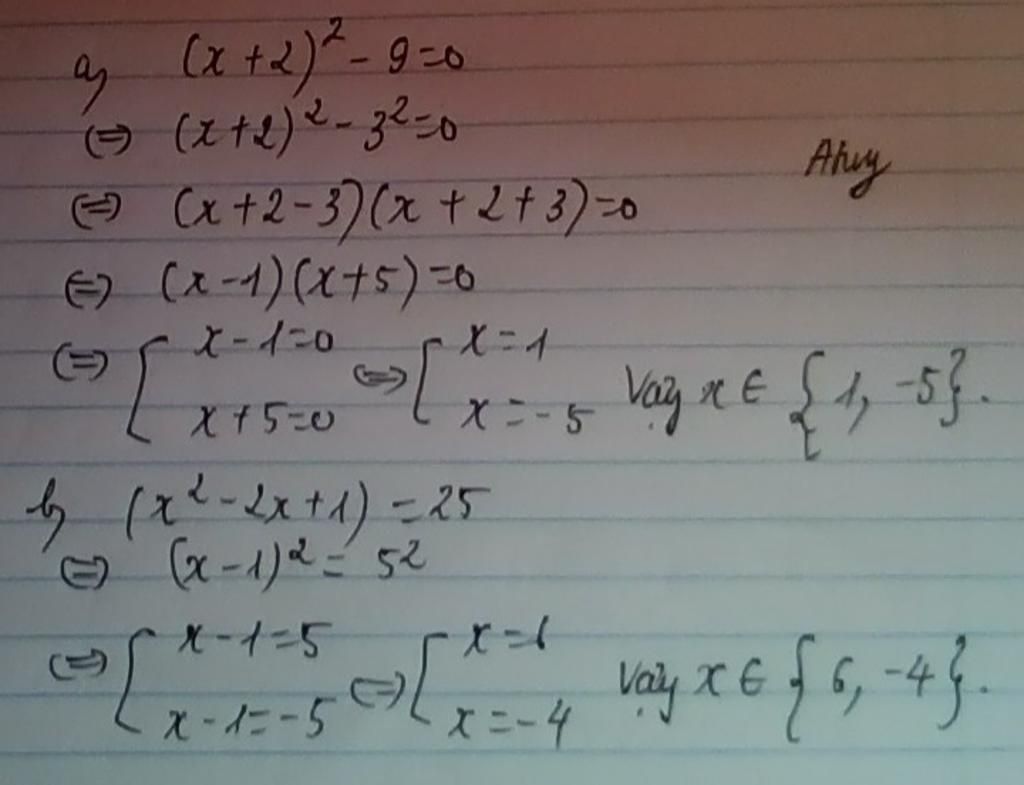 a, (x+2)² - 9=0
⇔ (x+2)² - 3²=0
Ahuy
⇔ (x+2-3)(x+2+3)=0
⇔ (x-1)(x+5)=0
⇔ [ x-1=0 ⇔ [ x=1
x+5=0 x=-5 Vậy x ∈ {1, -5}.
b, (x²-2x+1) = 25
⇔ (x-1)² = 5²
⇔ [ x-1=5 ⇔ [ x=6
x-1=-5 x=-4 Vậy x ∈ {6, -4}.